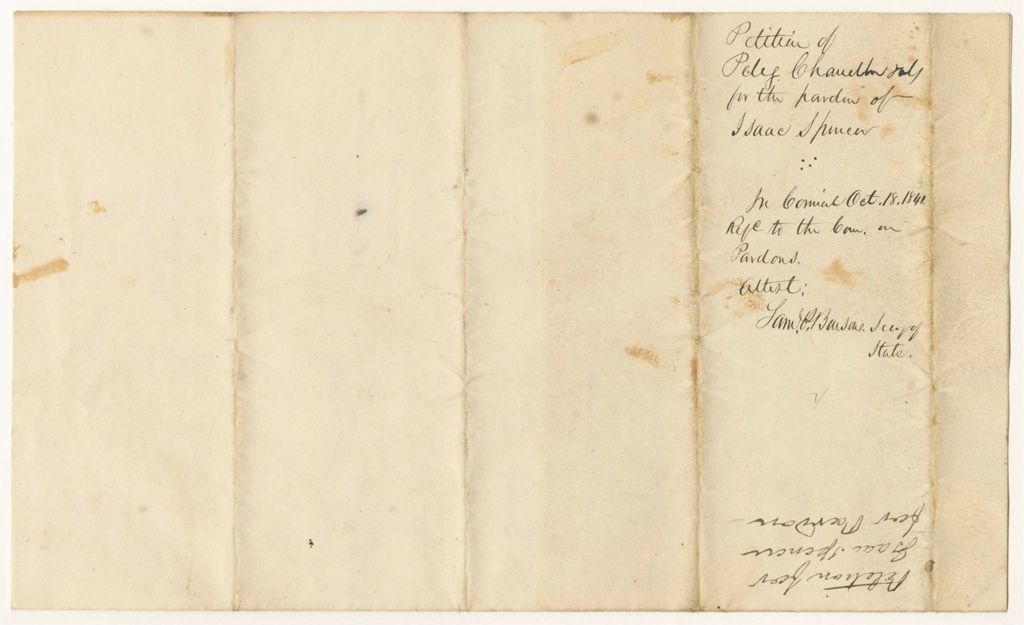 Petition of
Peleg Chandler & als
for the pardon of
Isaac Spencer
In Council Oct. 18. 1841.
Refd to the Com. on
Pardons.
Attest;
Saml P. Benson. Secy of
State.
Petetion for
Isaac Spencer
for Pardon